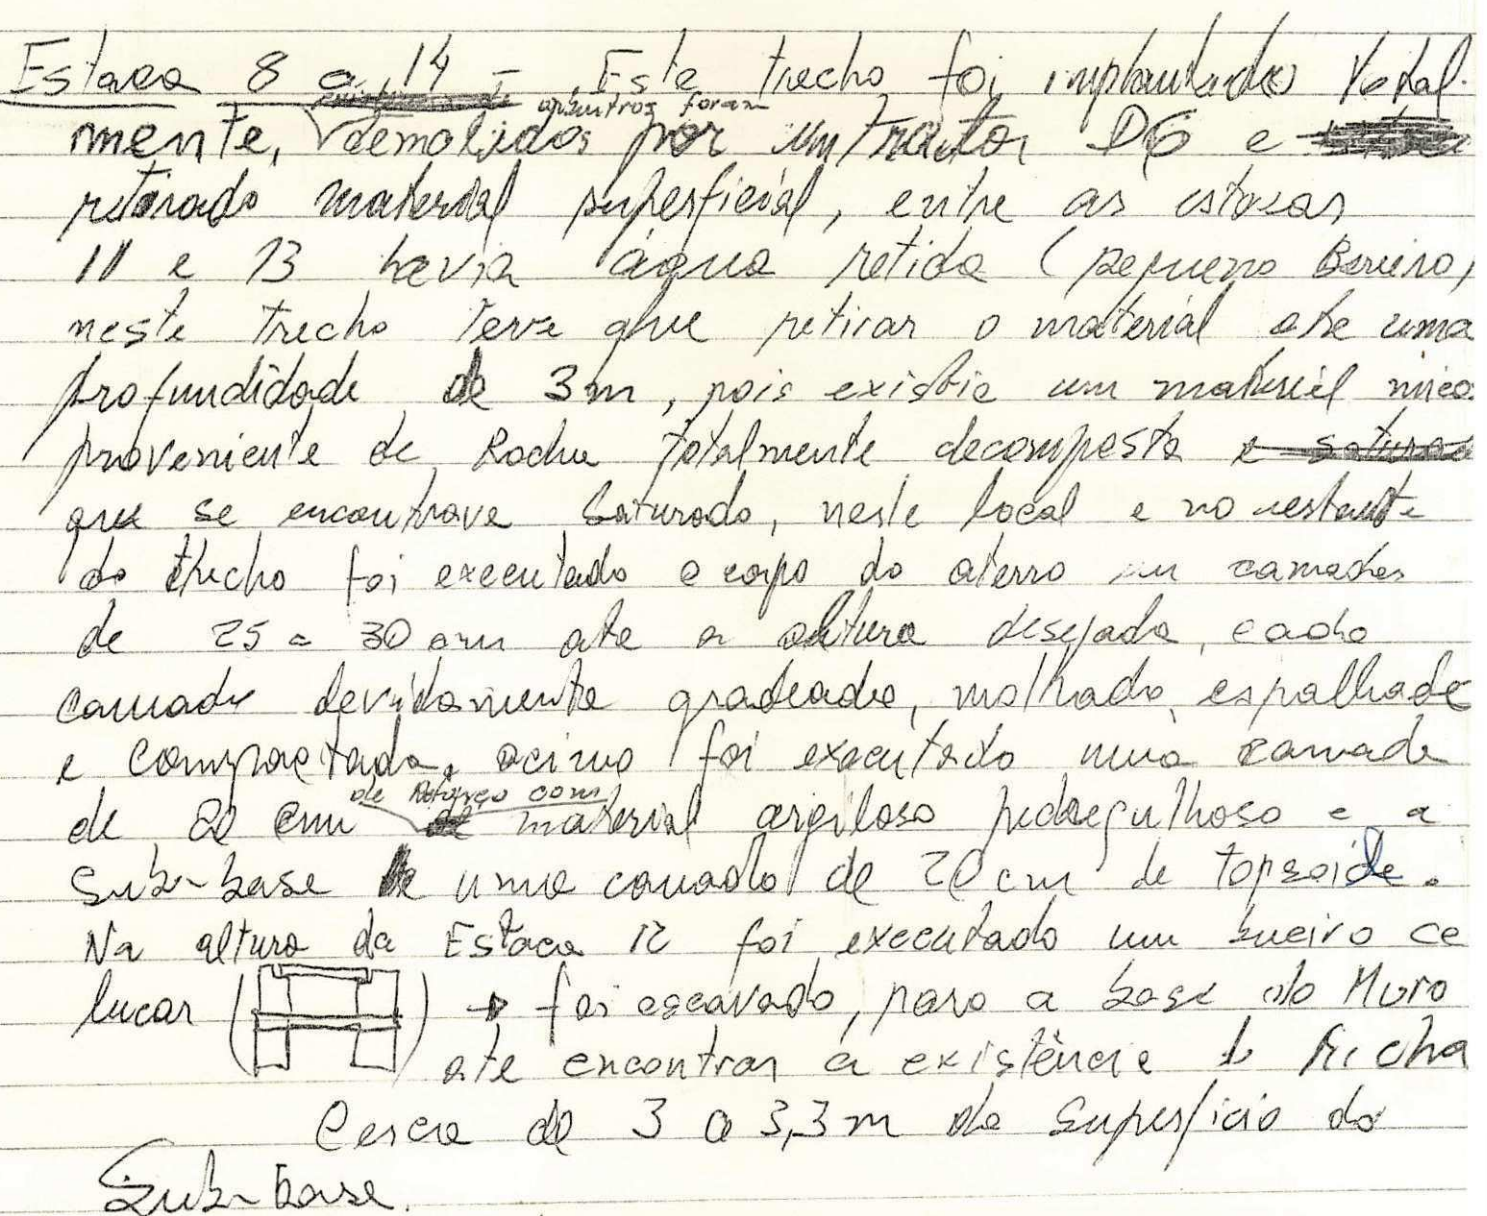 Estaca 8 a 14 - Este trecho foi implantado total-
foram
mente, demolidos por um trator D6 e
retirado material superficial, entre as estacas
11 e 13 havia água retida (pequeno Bueiro,
neste trecho teve que retirar o material ate uma
profundidade de 3m, pois existia um material
proveniente de Rocha totalmente decomposta e satura
que se encontrava saturado, neste local e no restante
do trecho foi executado o corpo do aterro em camadas
de 25 a 30 cm ate a altura desejada, cada
camada devidamente gradeada, molhada, espalhada
e compactada, acima foi executado uma camada
de Reforço com
de 20 cm material argiloso pedregulhoso e a
Sub-base uma camada de 20 cm de topsoide.
Na altura da Estaca 12 foi executado um bueiro ce
lucar ( ) → foi escavado, para a base do Muro
ate encontrar a existência d Richa
Cerca de 3 a 3,3m da Superficio da
Sub-base.